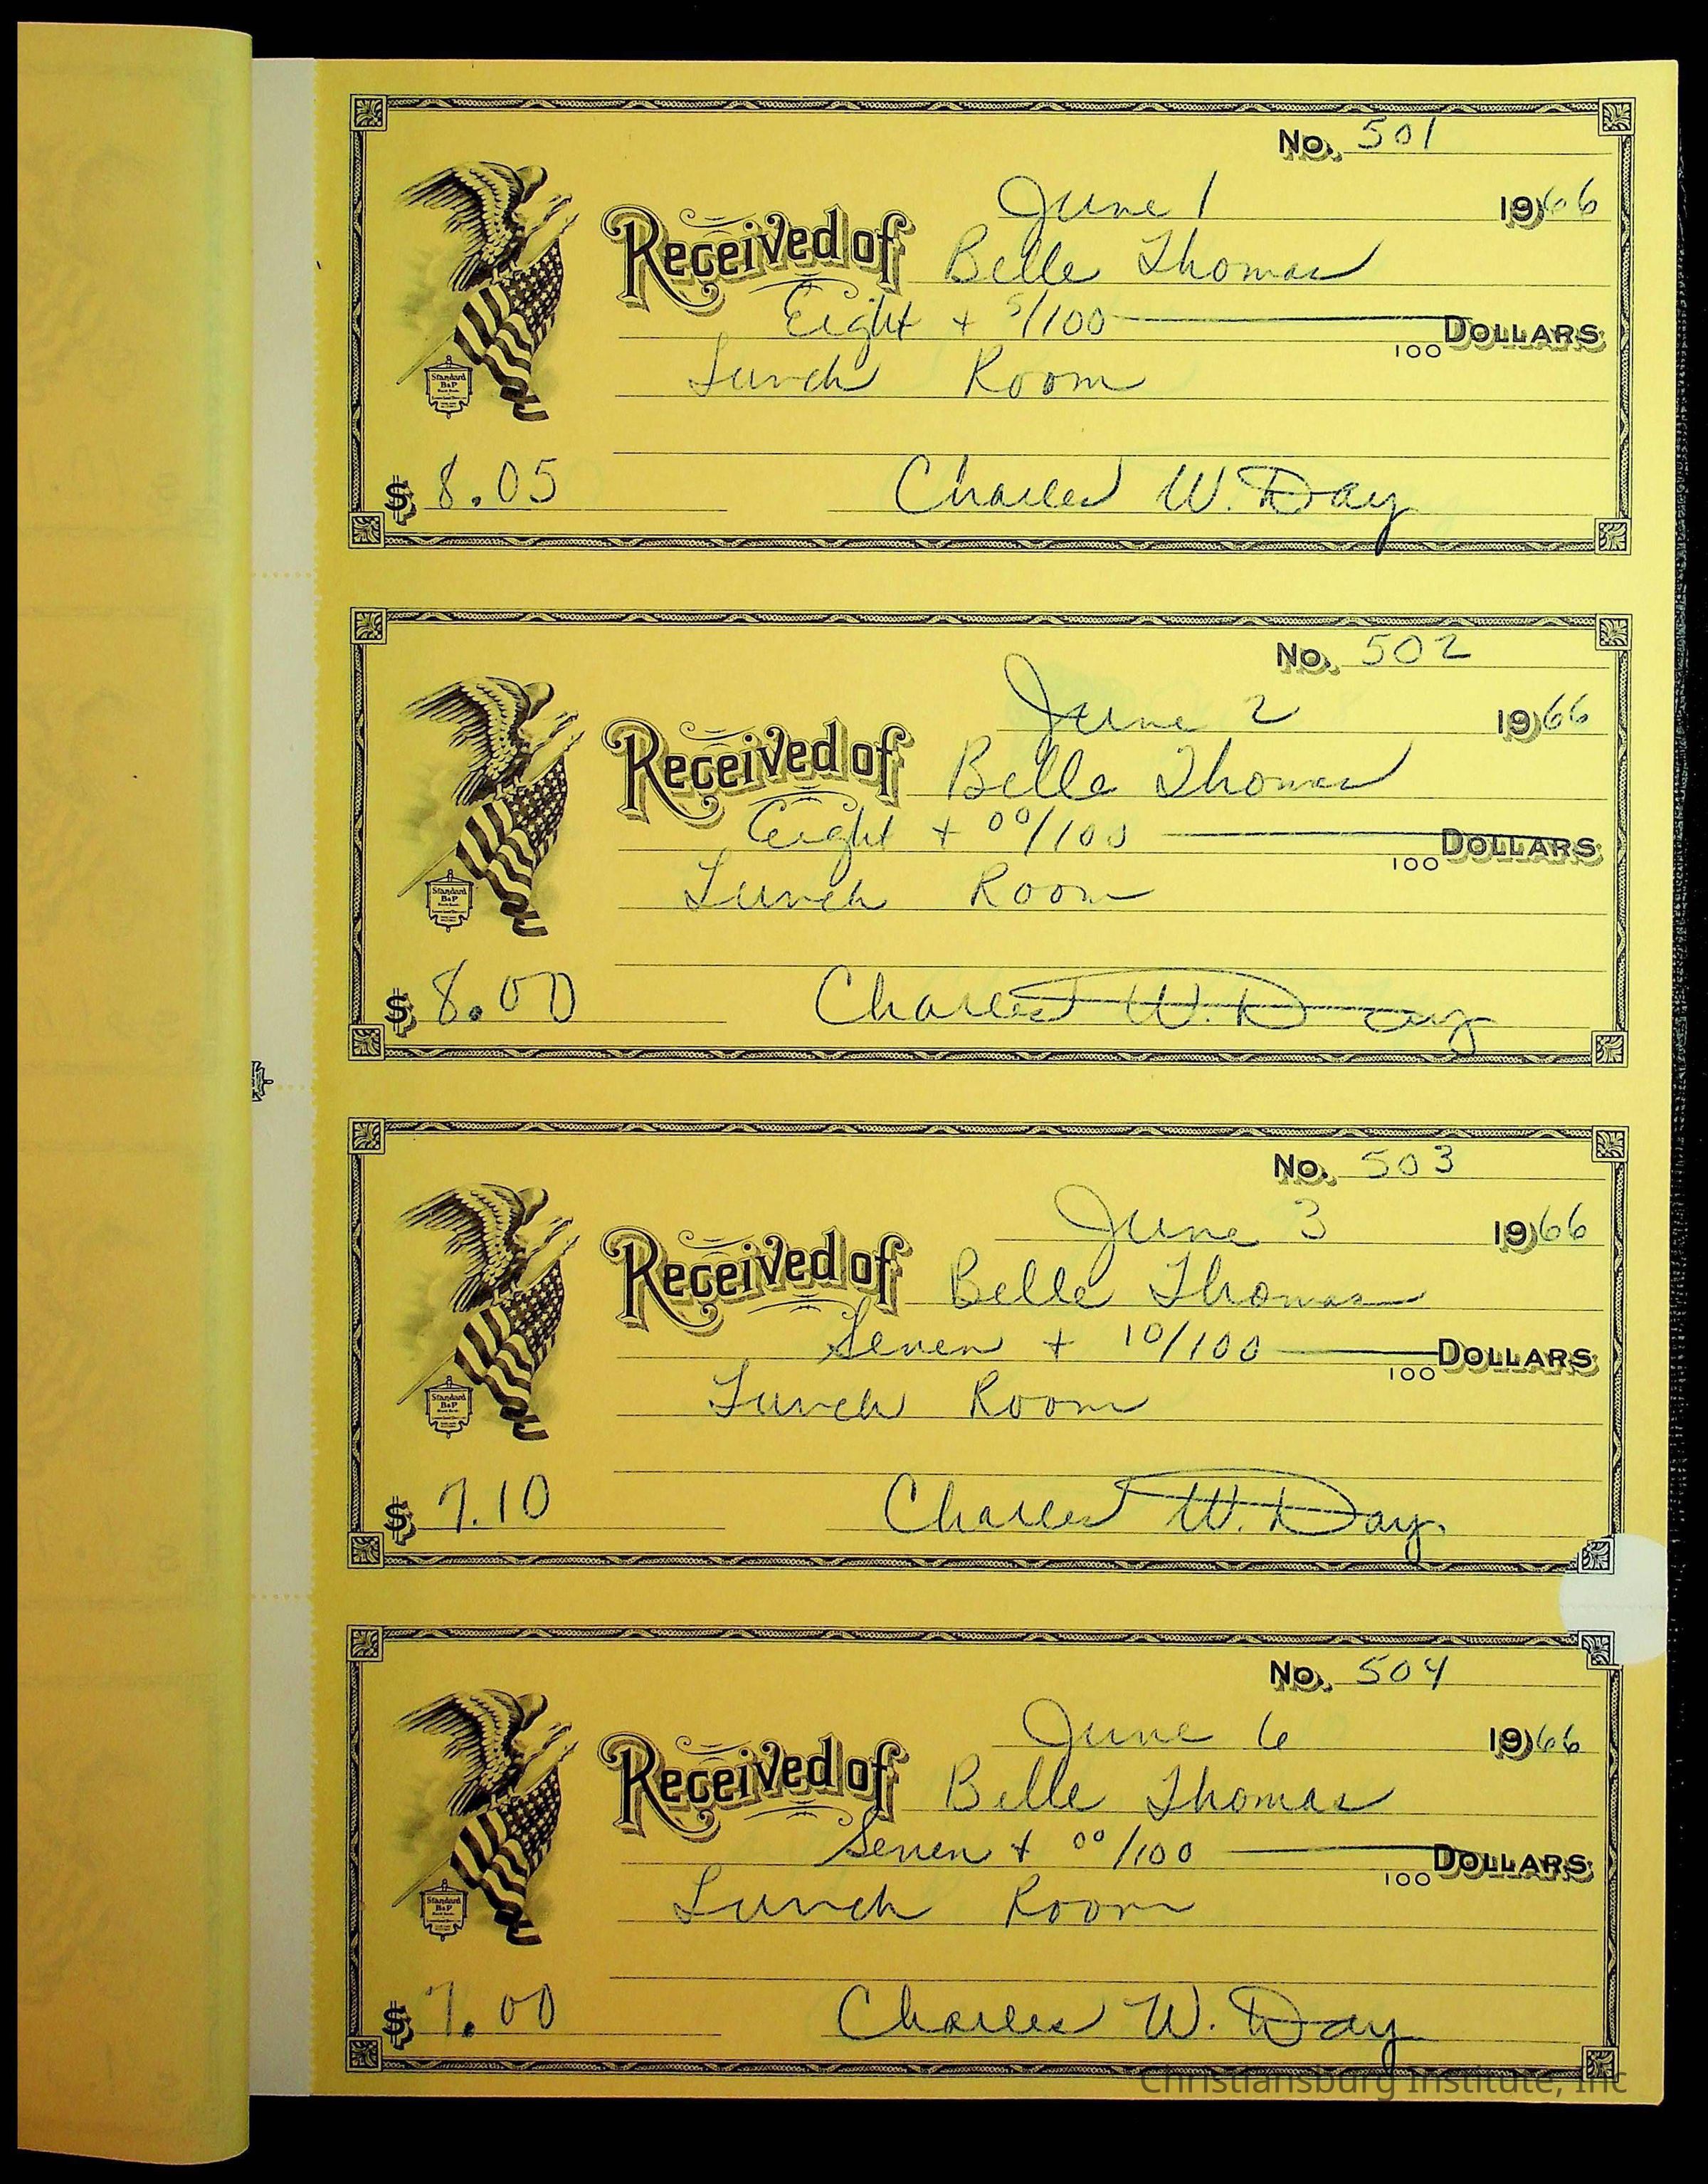 No. 501
June 1 1966
Received of Belle Thomas
Eight + 5/100 100 DOLLARS
Lunch Room
$ 8.05 Charles W. Day
Standard B&P
No. 502
June 2 1966
Received of Belle Thomas
Eight + 00/100 100 DOLLARS
Lunch Room
$ 8.00 Charles W. Day
Standard B&P
No. 503
June 3 1966
Received of Belle Thomas
Seven + 10/100 100 DOLLARS
Lunch Room
$ 7.10 Charles W. Day
Standard B&P
No. 504
June 6 1966
Received of Belle Thomas
Seven + 00/100 100 DOLLARS
Lunch Room
$ 7.00 Charles W. Day
Standard B&P
Christiansburg Institute, Inc